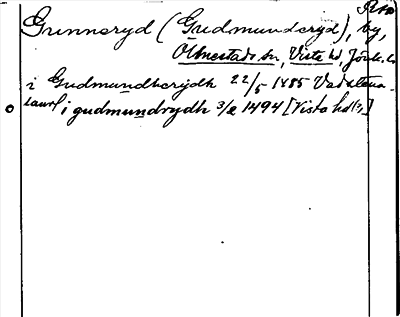 Gunnsryd (Gudmundsryd), by,
Ölmestads sn, Vista hd, Jönk. l.
i Gudmundherydh 22/5 1485 Vadstena
i gudmundrydh 3/2 1494 [Vista hd]